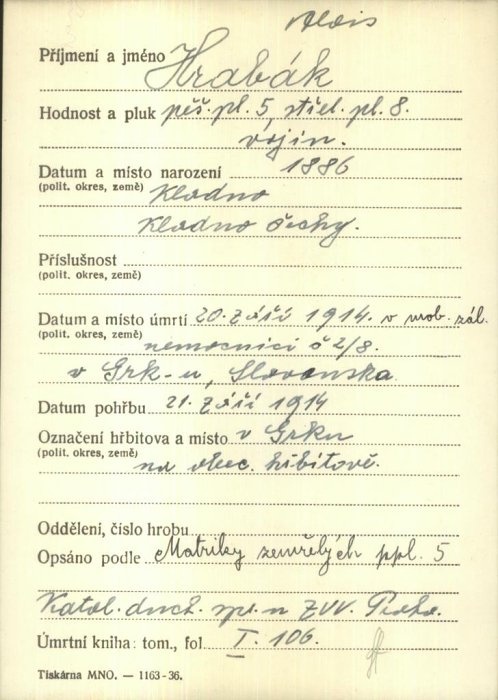 Alois
Příjmení a jméno Hrabák
Hodnost a pluk pěš. pl. 5, střel. pl. 8.
vojín.
Datum a místo narození 1886
(polit. okres, země) Kladno
Kladno Čechy.
Příslušnost
(polit. okres, země)
Datum a místo úmrtí 20. září 1914. v mob. zál.
(polit. okres, země) nemocnici č 2/8.
v Grk-u, Slavonska
Datum pohřbu 21. září 1914
Označení hřbitova a místo v Grku
(polit. okres, země) na obec. hřbitově.
Oddělení, číslo hrobu
Opsáno podle Matriky zemřelých ppl. 5
Katol. duch. spr. u ZVV. Praha.
Úmrtní kniha: tom., fol. I. 106.
Tiskárna MNO. — 1163-36.